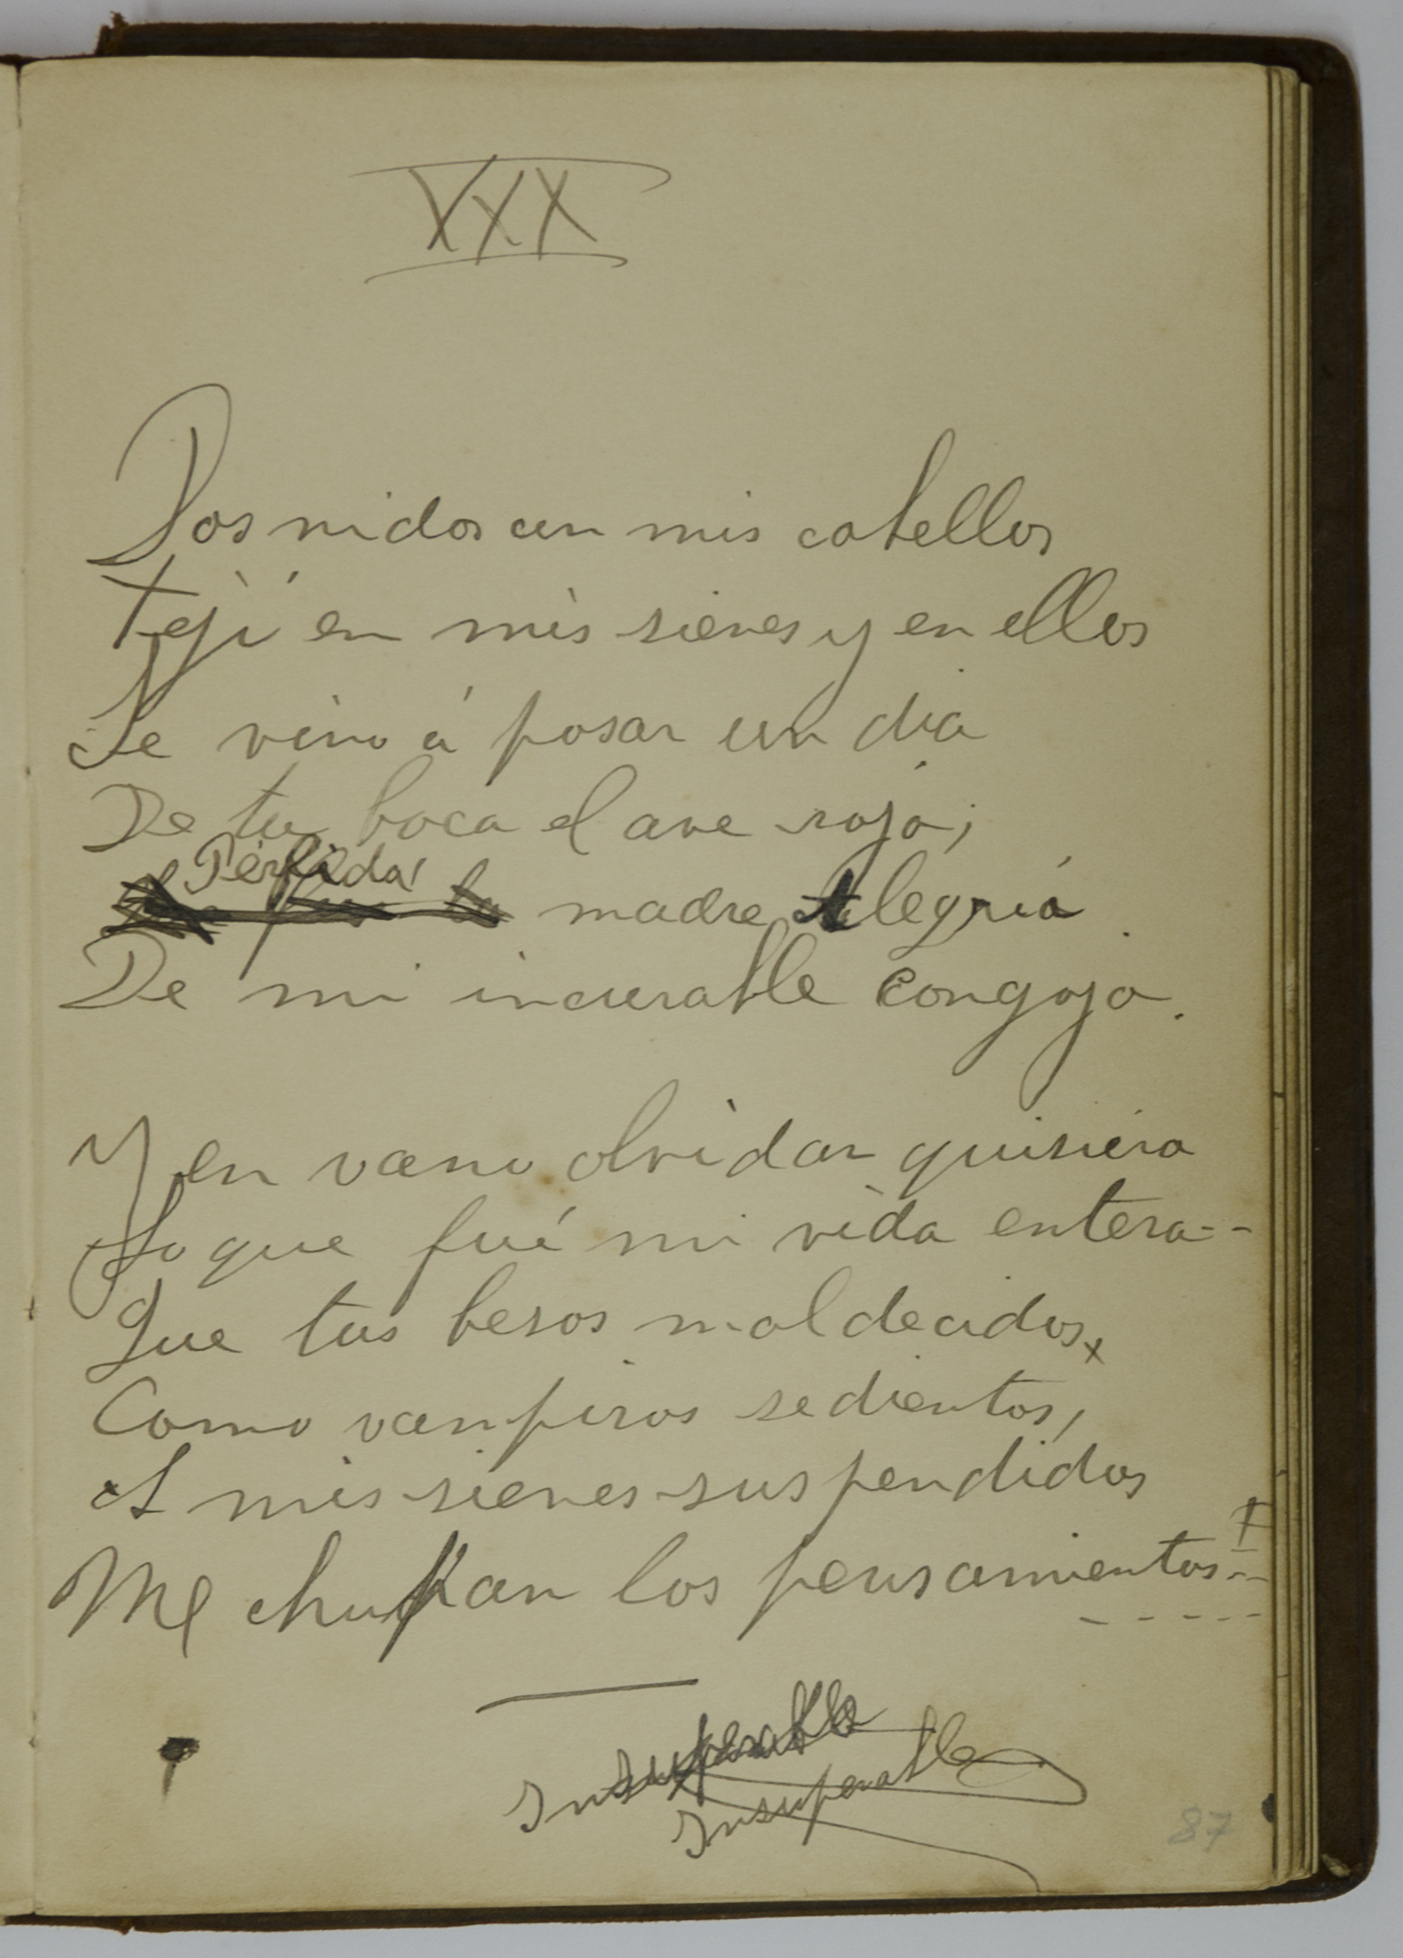 XXX
Dos nidos con mis cabellos
Tejí en mis sienes y en ellos
Se vino á posar un dia
De tu boca el ave roja;
Pérfida!
madre Alegría
De mi incurable congoja.
Y en vano olvidar quisiera
Lo que fué mi vida entera--
Que tus besos maldecidos
Como vampiros sedientos,
A mis sienes suspendidos
Me chupan los pensamientos---
- - - - -
Insuperable
Insuperable
87